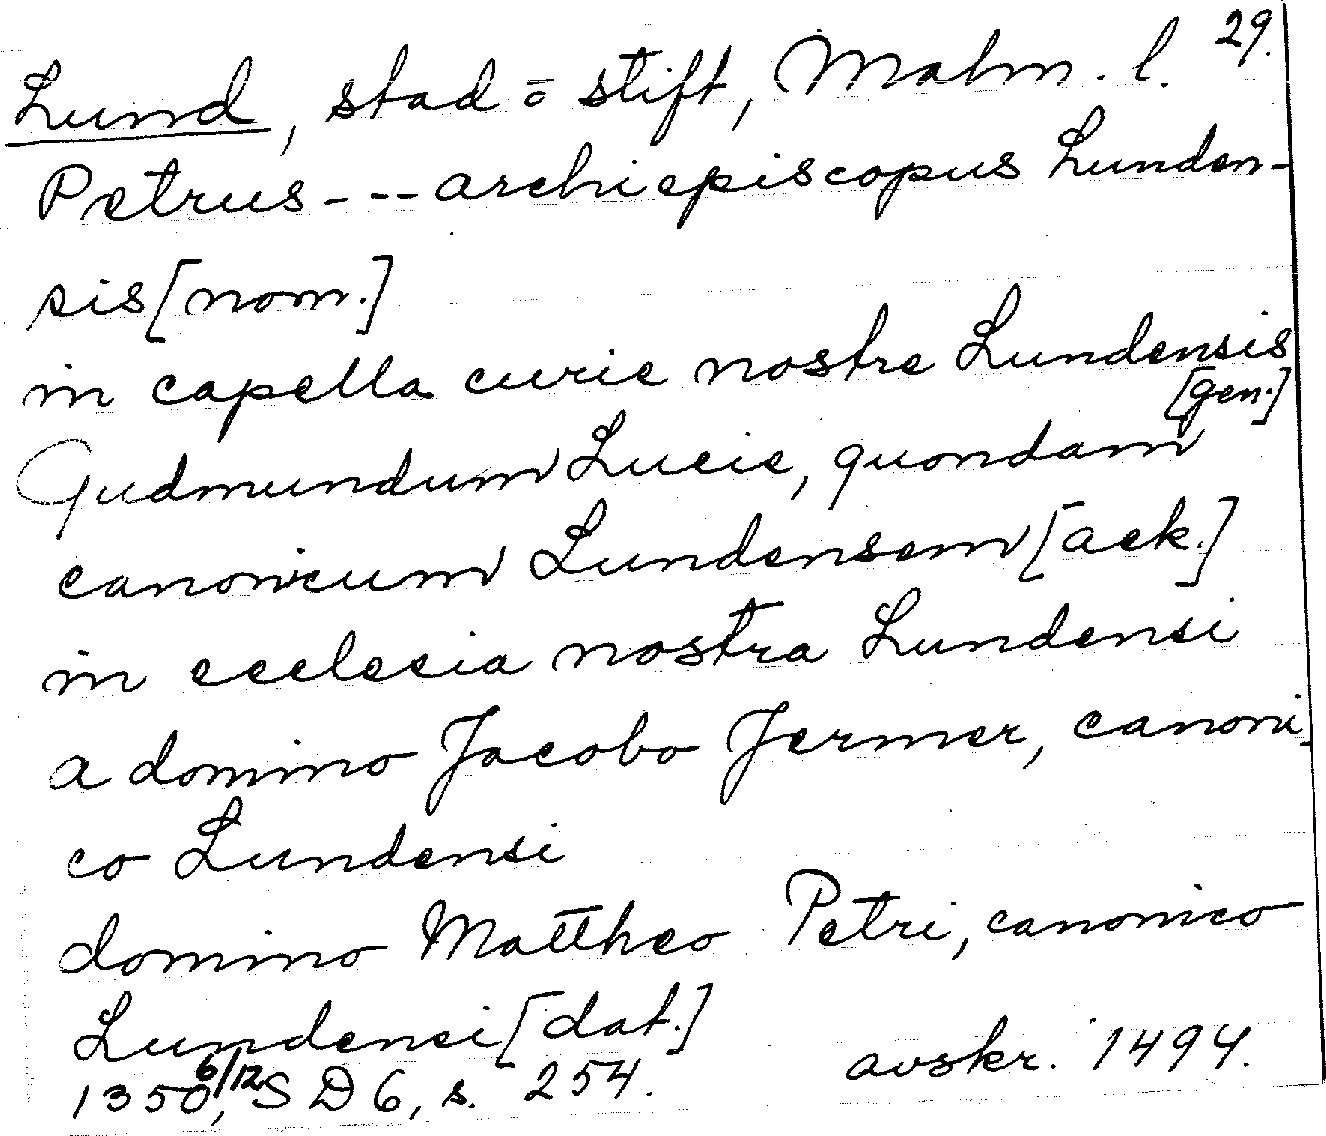 29.
Lund, stad o stift, Malm. l.
Petrus --- archiepiscopus Lunden-
sis [nom.]
in capella curie nostre Lundensis
[gen.]
Gudmundum Lucie, quondam
canonicum Lundensem [ack.]
in ecclesia nostra Lundensi
a domino Jacobo Jermer, canoni-
co Lundensi
domino Mattheo Petri, canonico
Lundensi [dat.]
1350 6/12, SD 6, s. 254. avskr. 1494.